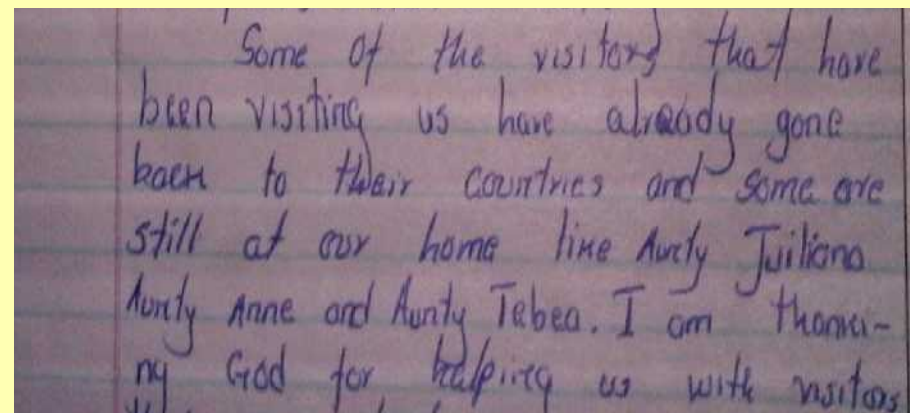 Some of the visitors that have
been visiting us have already gone
back to their countries and some are
still at our home like Aunty Juiliana
Aunty Anne and Aunty Tebea. I am thanki-
ng God for helping us with visitors